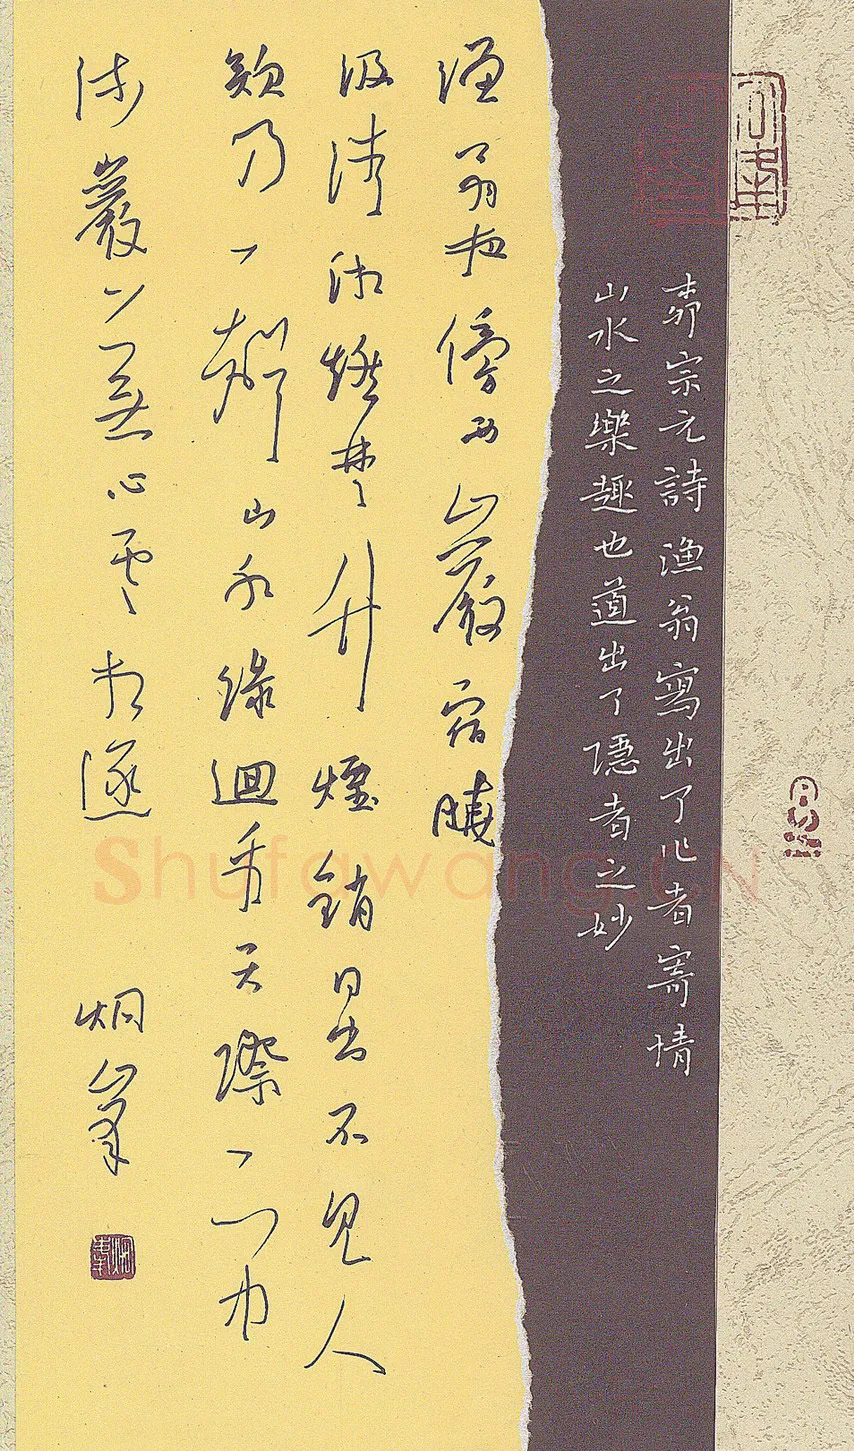 柳宗元詩漁翁寫出了作者寄情
山水之樂趣也道出了隱者之妙
漁翁夜傍西巖宿曉
汲清湘燃楚竹煙銷日出不見人
欸乃一聲山水綠迴看天際下中
流巖上無心雲相逐
炯峯
Shufawang.CN